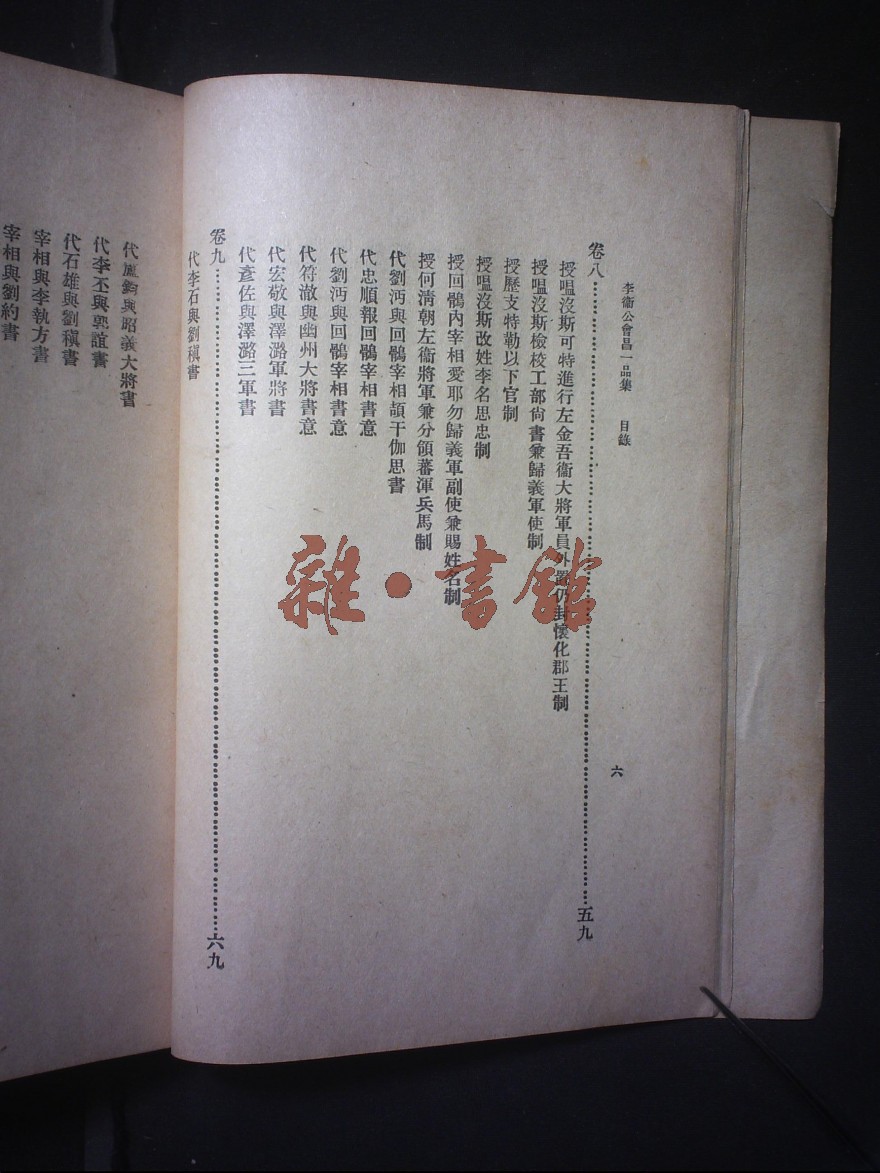 李衞公會昌一品集　目錄
六
卷八……五九
授嗢沒斯可特進行左金吾衞大將軍員外置仍封懷化郡王制
授嗢沒斯檢校工部尙書兼歸義軍使制
授歷支特勒以下官制
授嗢沒斯改姓李名思忠制
授回鶻內宰相愛耶勿歸義軍副使兼賜姓名制
授何淸朝左衞將軍兼分領蕃渾兵馬制
代劉沔與回鶻宰相頡干伽思書
代忠順報回鶻宰相書意
代劉沔與回鶻宰相書意
代符澈與幽州大將書意
代宏敬與澤潞軍將書
代彥佐與澤潞三軍書
卷九……六九
代李石與劉稹書
代盧鈞與昭義大將書
代李丕與郭誼書
代石雄與劉稹書
宰相與李執方書
宰相與劉約書
雜·書館